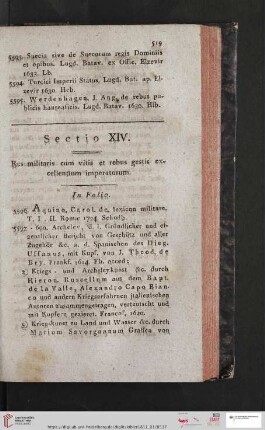 519
5593 Suecia sive de Suecorum regis Dominiis
et opibus. Lugd. Batav. ex Offic. Elzevir
1633. Lb.
5594 Turcici Imperii Status. Lugd. Bat. ap. El-
zevir 1630. Hcb.
5595 Werdenhagen, J. Ang. de rebus pu-
blicis hanseaticis. Lugd. Batav. 1630. Hlb.
Sectio XIV.
Res militaris cum vitis et rebus gestis ex-
cellentium imperatorum.
In Folio.
5596 Aquino, Carol. de, lexicon militare.
T. I. II. Romæ 1724. Schwlb.
5597 - Archeley, d. i. Gründlicher und ei-
gentlicher Bericht von Geschütz und aller
Zugehör &c. a. d. Spanischen des Dieg.
Uffanus, mit Kupf. von J. Theod. de
Bry. Frankf. 1614. Fb.
2) Kriegs- und Archeleykunst &c. durch
Hieron. Ruscellum aus dem Bapt.
de la Valle, Alexandro Capo Bian-
co und andern Kriegserfahrnen italienischen
Autoren zusammengetragen, verteutscht und
mit Kupfern geziert. Francof. 1620.
3) Kriegskunst zu Land und Wasser &c. durch
Marium Savorgnanum Graffen von